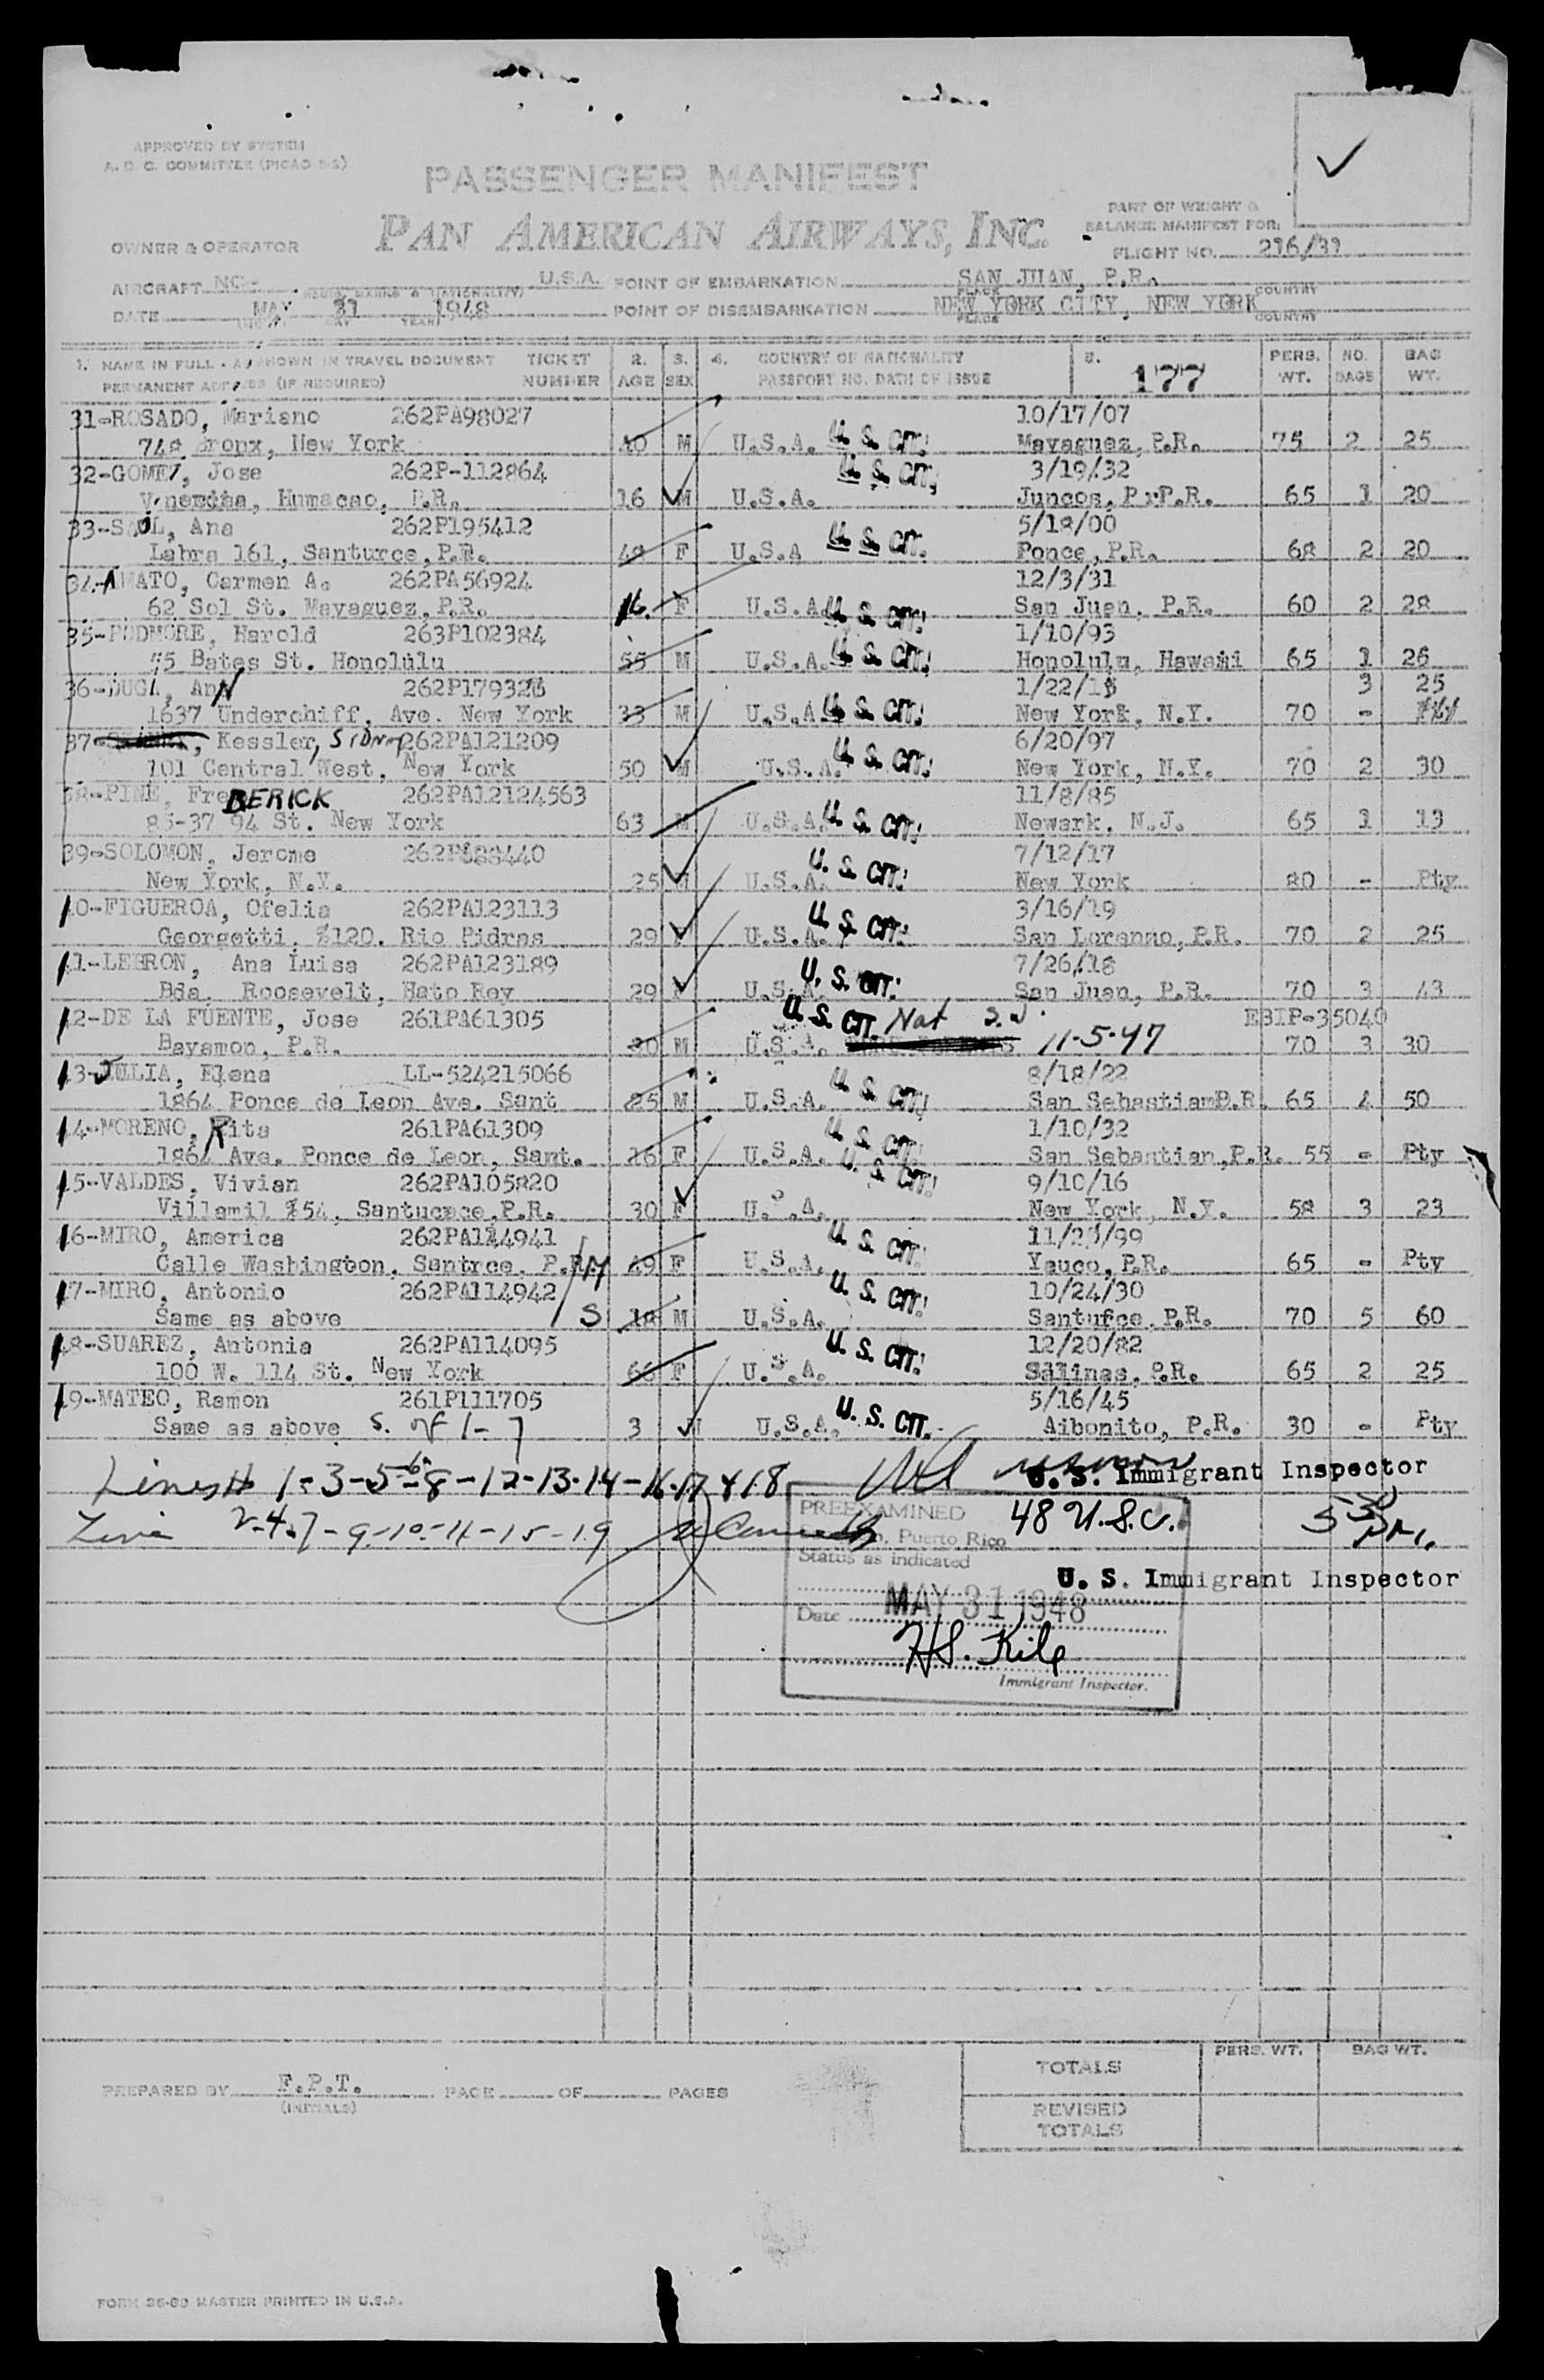 APPROVED BY SYSTEM
A. D. C. COMMITTEE (PICAO
PASSENGER MANIFEST
PAN AMERICAN AIRWAYS, INC.
PART OF WEIGHT &
BALANCE MANIFEST FOR:
OWNER & OPERATOR
FLIGHT NO. 216/31
AIRCRAFT NC- U.S.A. POINT OF EMBARKATION SAN JUAN, P.R.
(REGIS. MARKS & NATIONALITY) PLACE COUNTRY
DATE MAY 31 1948 POINT OF DISEMBARKATION NEW YORK CITY, NEW YORK
(MONTH) DAY YEAR) PLACE COUNTRY
1. NAME IN FULL - AS SHOWN IN TRAVEL DOCUMENT TICKET 2. 3. 4. COUNTRY OF NATIONALITY 5. PERS. NO. BAG
PERMANENT ADDRESS (IF REQUIRED) NUMBER AGE SEX PASSPORT NO. DATE OF ISSUE 177 WT. BAGS WT.
31-ROSADO, Mariano 262PA98027 10/17/07
748 Bronx, New York 40 M U.S.A. U. S. CIT. Mayaguez, P.R. 75 2 25
32-GOMEZ, Jose 262P-112864 U. S. CIT. 3/19/32
Humacao, P.R. 16 M U.S.A. Juncos, P.R. 65 1 20
33-SAUL, Ana 262P195412 5/18/00
Labra 161, Santurce, P.R. 48 F U.S.A U. S. CIT. Ponce, P.R. 68 2 20
34-AMATO, Carmen A. 262PA56924 12/3/31
62 Sol St. Mayaguez, P.R. 16 F U.S.A. U. S. CIT. San Juan, P.R. 60 2 28
35-PODMORE, Harold 263P102384 1/10/93
55 Bates St. Honolulu 55 M U.S.A. U. S. CIT. Honolulu, Hawaii 65 1 26
36-DUGA, AnN 262P17932 1/22/15 3 25
1637 Underchiff, Ave. New York 33 M U.S.A U. S. CIT. New York, N.Y. 70 -
37- Kessler, SIDNEY 262PA121209 6/20/97
101 Central West, New York 50 M U.S.A. U. S. CIT. New York, N.Y. 70 2 30
38-PINE, FreDERICK 262PA12124563 11/8/85
85-37 94 St. New York 63 M U.S.A. U. S. CIT. Newark, N.J. 65 1 13
39-SOLOMON, Jerome 262P688440 7/12/17
New York, N.Y. 25 M U.S.A. U. S. CIT. New York 80 - Pty
10-FIGUEROA, Ofelia 262PA123113 3/16/19
Georgetti, %120. Rio Pidras 29 F U.S.A. U. S. CIT. San Lorenzo, P.R. 70 2 25
11-LEBRON, Ana Luisa 262PA123189 7/26/18
Bda. Roosevelt, Hato Rey 29 F U.S.A. U. S. CIT. San Juan, P.R. 70 3 43
12-DE LA FUENTE, Jose 261PA61305 U. S. CIT. Nat S.J. EBIP-35040
Bayamon, P.R. 20 M U.S.A. 11-5-47 70 3 30
13-JULIA, Elena LL-524215066 8/18/22
1864 Ponce de Leon Ave. Sant 25 M U.S.A. U. S. CIT. San Sebastian P.R. 65 4 50
14-MORENO, Rita 261PA61309 1/10/32
1864 Ave. Ponce de Leon, Sant. 16 F U.S.A. U. S. CIT. San Sebastian, P.R. 55 - Pty
15-VALDES, Vivian 262PA105820 U. S. CIT. 9/10/16
Villamil %54, Santucace, P.R. 30 F U.S.A. New York, N.Y. 58 3 23
16-MIRO, America 262PA114941 11/25/99
Calle Washington, Santrce, P.R. M 49 F U.S.A. U. S. CIT. Yauco, P.R. 65 - Pty
17-MIRO, Antonio 262PA114942 10/24/30
Same as above S 18 M U.S.A. U. S. CIT. Santurce, P.R. 70 5 60
18-SUAREZ, Antonia 262PA114095 12/20/82
100 W. 114 St. New York 66 F U.S.A. U. S. CIT. Salinas, P.R. 65 2 25
19-MATEO, Ramon 261P111705 5/16/45
Same as above S. of 1-7 3 M U.S.A. U. S. CIT. Aibonito, P.R. 30 - Pty
Lines# 1-3-5-6-8-12-13-14-16-17 & 18 U. S. Immigrant Inspector
Line 2-4-7-9-10-11-15-19
PREEXAMINED 48 U.S.C.
Puerto Rico
Status as indicated
U. S. Immigrant Inspector
Date MAY 31 1948
H.S. Kile
Immigrant Inspector.
TOTALS PERS. WT. BAG WT.
PREPARED BY F.P.T. PAGE OF PAGES
(INITIALS)
REVISED
TOTALS
FORM 36-80 MASTER PRINTED IN U.S.A.